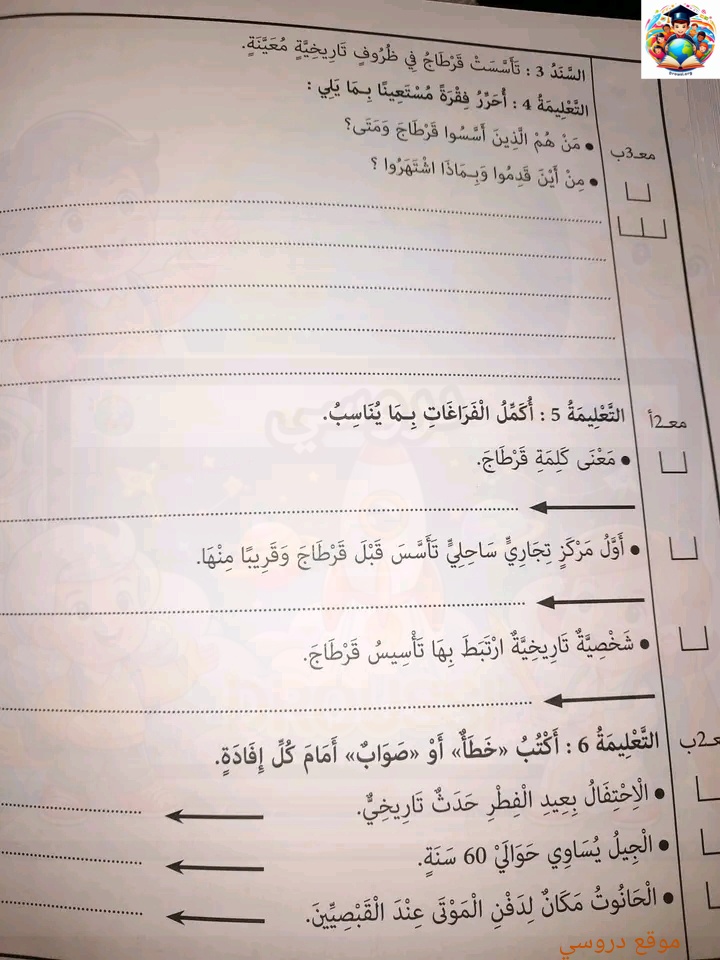 السَّنَدُ 3 : تَأَسَّسَتْ قَرْطَاجُ فِي ظُرُوفٍ تَارِيخِيَّةٍ مُعَيَّنَةٍ.
التَّعْلِيمَةُ 4 : أُحَرِّرُ فِقْرَةً مُسْتَعِينًا بِمَا يَلِي :
معـ3ب
• مَنْ هُمْ الَّذِينَ أَسَّسُوا قَرْطَاجَ وَمَتَى؟
• مِنْ أَيْنَ قَدِمُوا وَبِمَاذَا اشْتَهَرُوا ؟
دروسي
معـ2أ
التَّعْلِيمَةُ 5 : أُكَمِّلُ الْفَرَاغَاتِ بِمَا يُنَاسِبُ.
• مَعْنَى كَلِمَةِ قَرْطَاجَ.
• أَوَّلُ مَرْكَزٍ تِجَارِيٍّ سَاحِلِيٍّ تَأَسَّسَ قَبْلَ قَرْطَاجَ وَقَرِيبًا مِنْهَا.
• شَخْصِيَّةٌ تَارِيخِيَّةٌ ارْتَبَطَ بِهَا تَأْسِيسُ قَرْطَاجَ.
عـ2ب
التَّعْلِيمَةُ 6 : أَكْتُبُ «خَطَأٌ» أَوْ «صَوَابٌ» أَمَامَ كُلِّ إِفَادَةٍ.
• الْاِحْتِفَالُ بِعِيدِ الْفِطْرِ حَدَثٌ تَارِيخِيٌّ.
• الْجِيلُ يُسَاوِي حَوَالَيْ 60 سَنَةٍ.
• الْحَانُوتُ مَكَانٌ لِدَفْنِ الْمَوْتَى عِنْدَ الْقَبْصِيِّينَ.
موقع دروسي